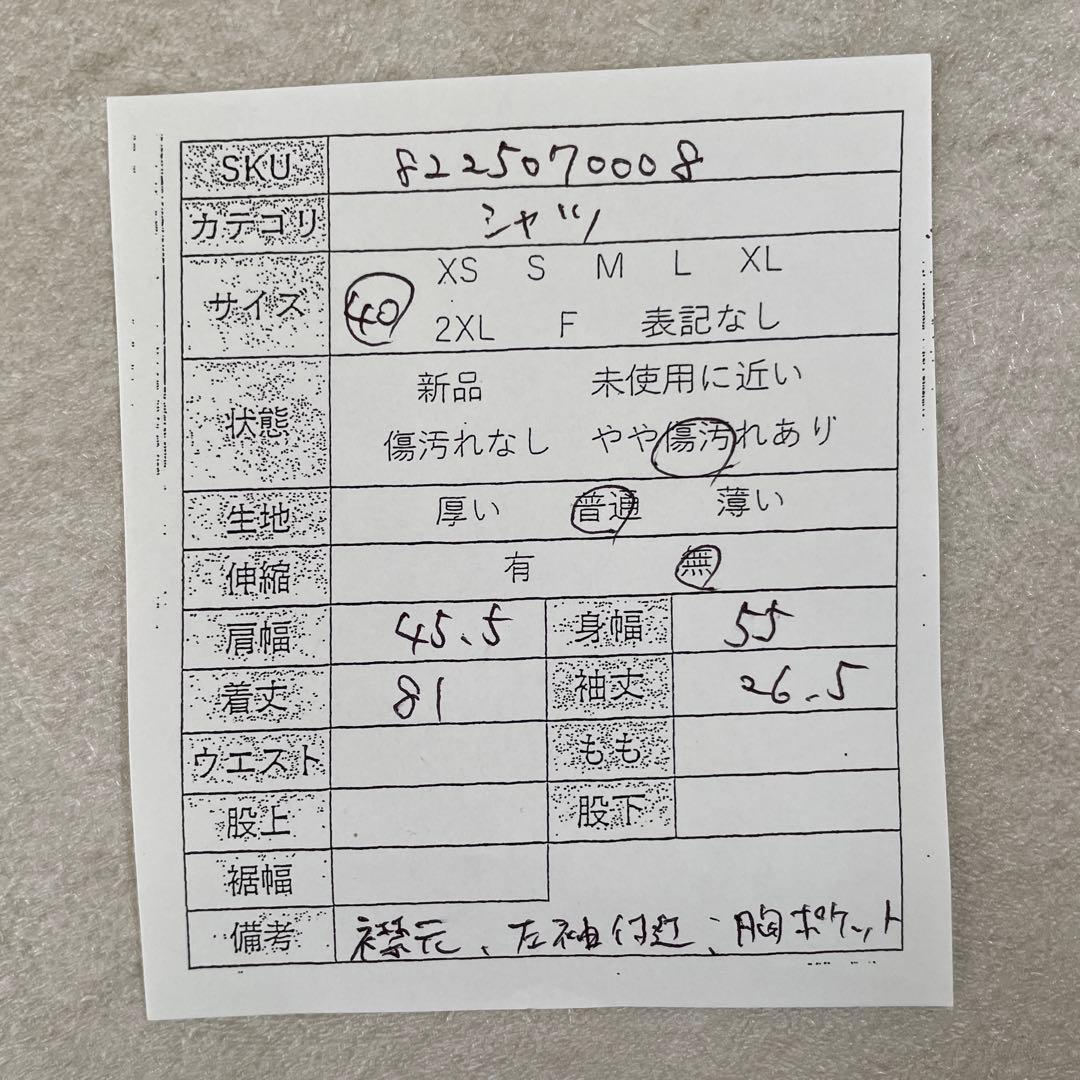 SKU 8225070008
カテゴリ シャツ
サイズ 40 XS S M L XL
2XL F 表記なし
状態 新品 未使用に近い
傷汚れなし やや傷汚れあり
生地 厚い 普通 薄い
伸縮 有 無
肩幅 45.5 身幅 55
着丈 81 袖丈 26.5
ウエスト もも
股上 股下
裾幅
備考 襟元、左袖付近、胸ポケット